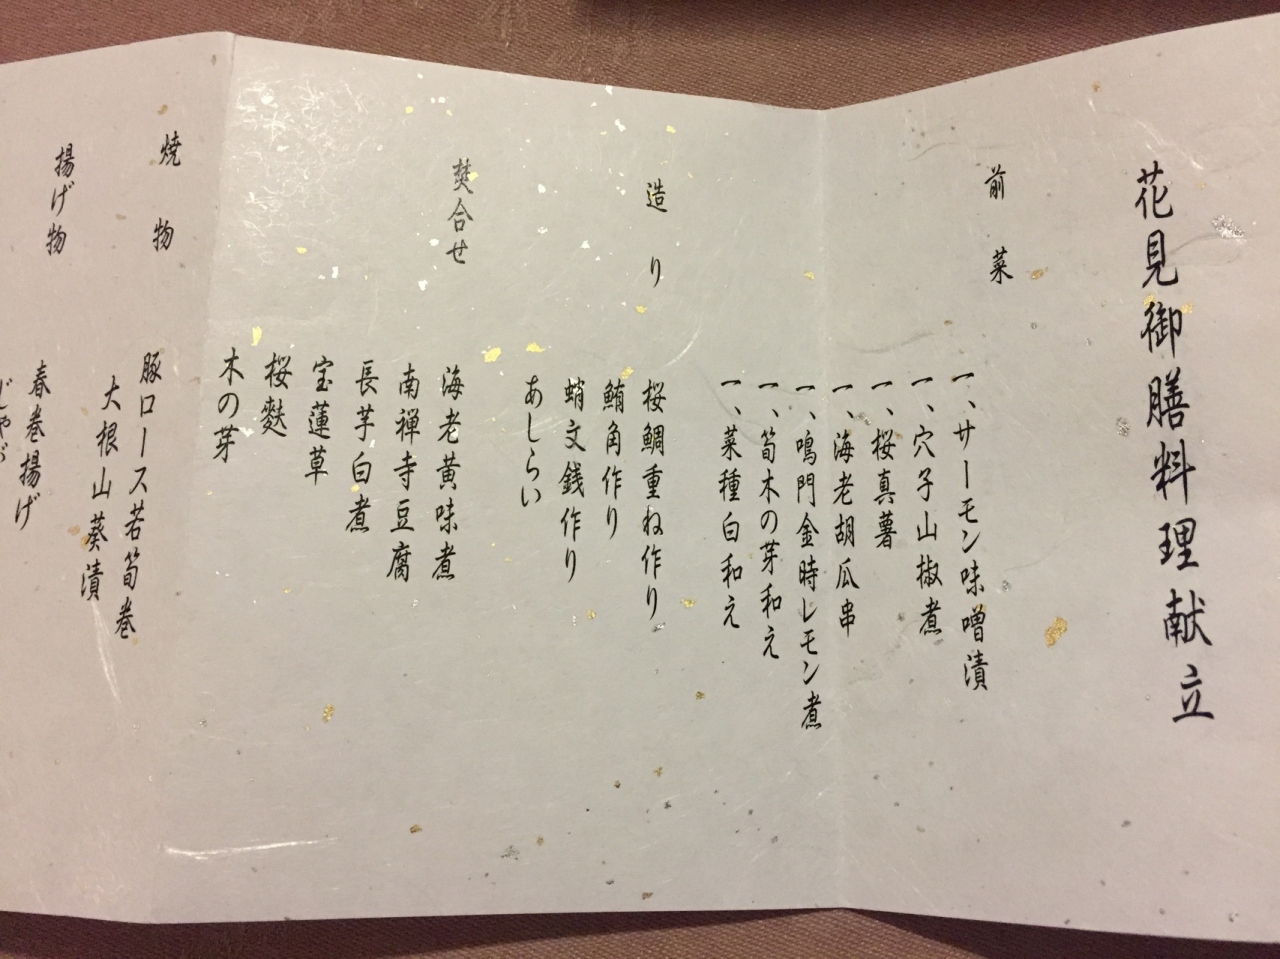 花見御膳料理献立
前菜
一、サーモン味噌漬
一、穴子山椒煮
一、桜真薯
一、海老胡瓜串
一、鳴門金時レモン煮
一、筍木の芽和え
一、菜種白和え
造り
桜鯛重ね作り
鮪角作り
蛸文銭作り
あしらい
焚合せ
海老黄味煮
南禅寺豆腐
長芋白煮
宝蓮草
桜麩
木の芽
焼物
豚ロース若筍巻
大根山葵漬
揚げ物
春巻揚げ